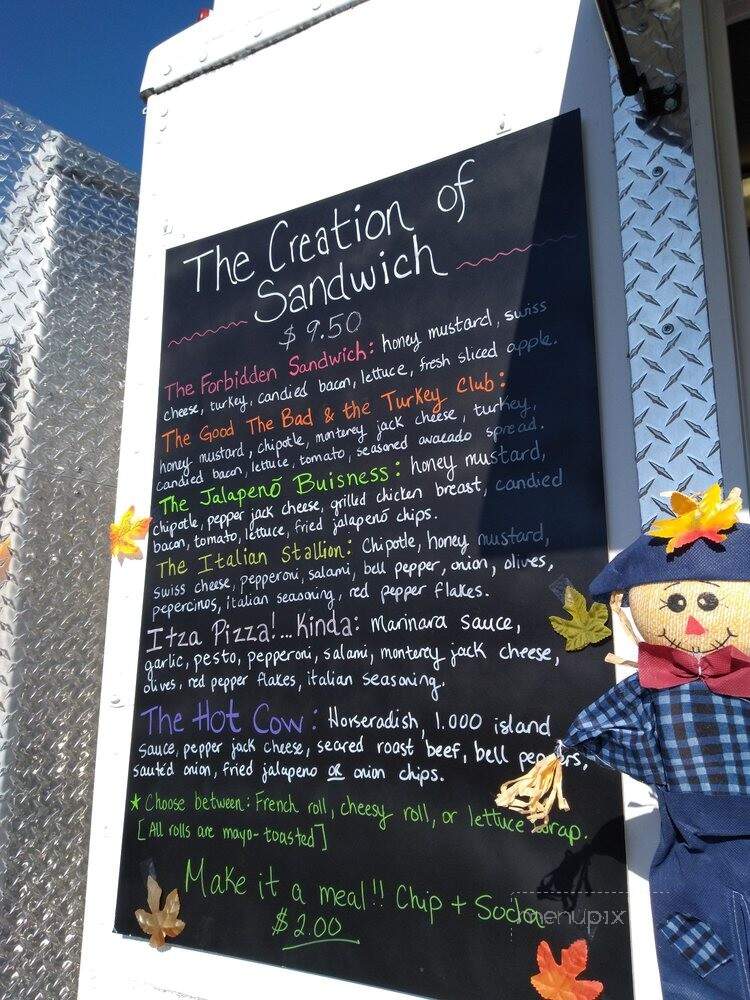 The Creation of
Sandwich
$9.50
The Forbidden Sandwich: honey mustard, swiss
cheese, turkey, candied bacon, lettuce, fresh sliced apple.
The Good The Bad & the Turkey Club:
honey mustard, chipotle, monterey jack cheese, turkey,
candied bacon, lettuce, tomato, seasoned avacado spread.
The Jalapenō Buisness: honey mustard,
chipotle, pepper jack cheese, grilled chicken breast, candied
bacon, tomato, lettuce, fried jalapenō chips.
The Italian Stallion: Chipotle, honey mustard,
swiss cheese, pepperoni, salami, bell pepper, onion, olives,
pepercinos, italian seasoning, red pepper flakes.
Itza Pizza!...Kinda: Marinara sauce,
garlic, pesto, pepperoni, salami, monterey jack cheese,
olives, red pepper flakes, italian seasoning.
The Hot Cow: Horseradish, 1.000 island
sauce, pepper jack cheese, seared roast beef, bell peppers,
sauté'd onion, fried jalapeno OR onion chips.
★ Choose between: French roll, cheesy roll, or lettuce wrap.
[All rolls are mayo-toasted]
Make it a meal!! Chip + Soda
$2.00
menupix